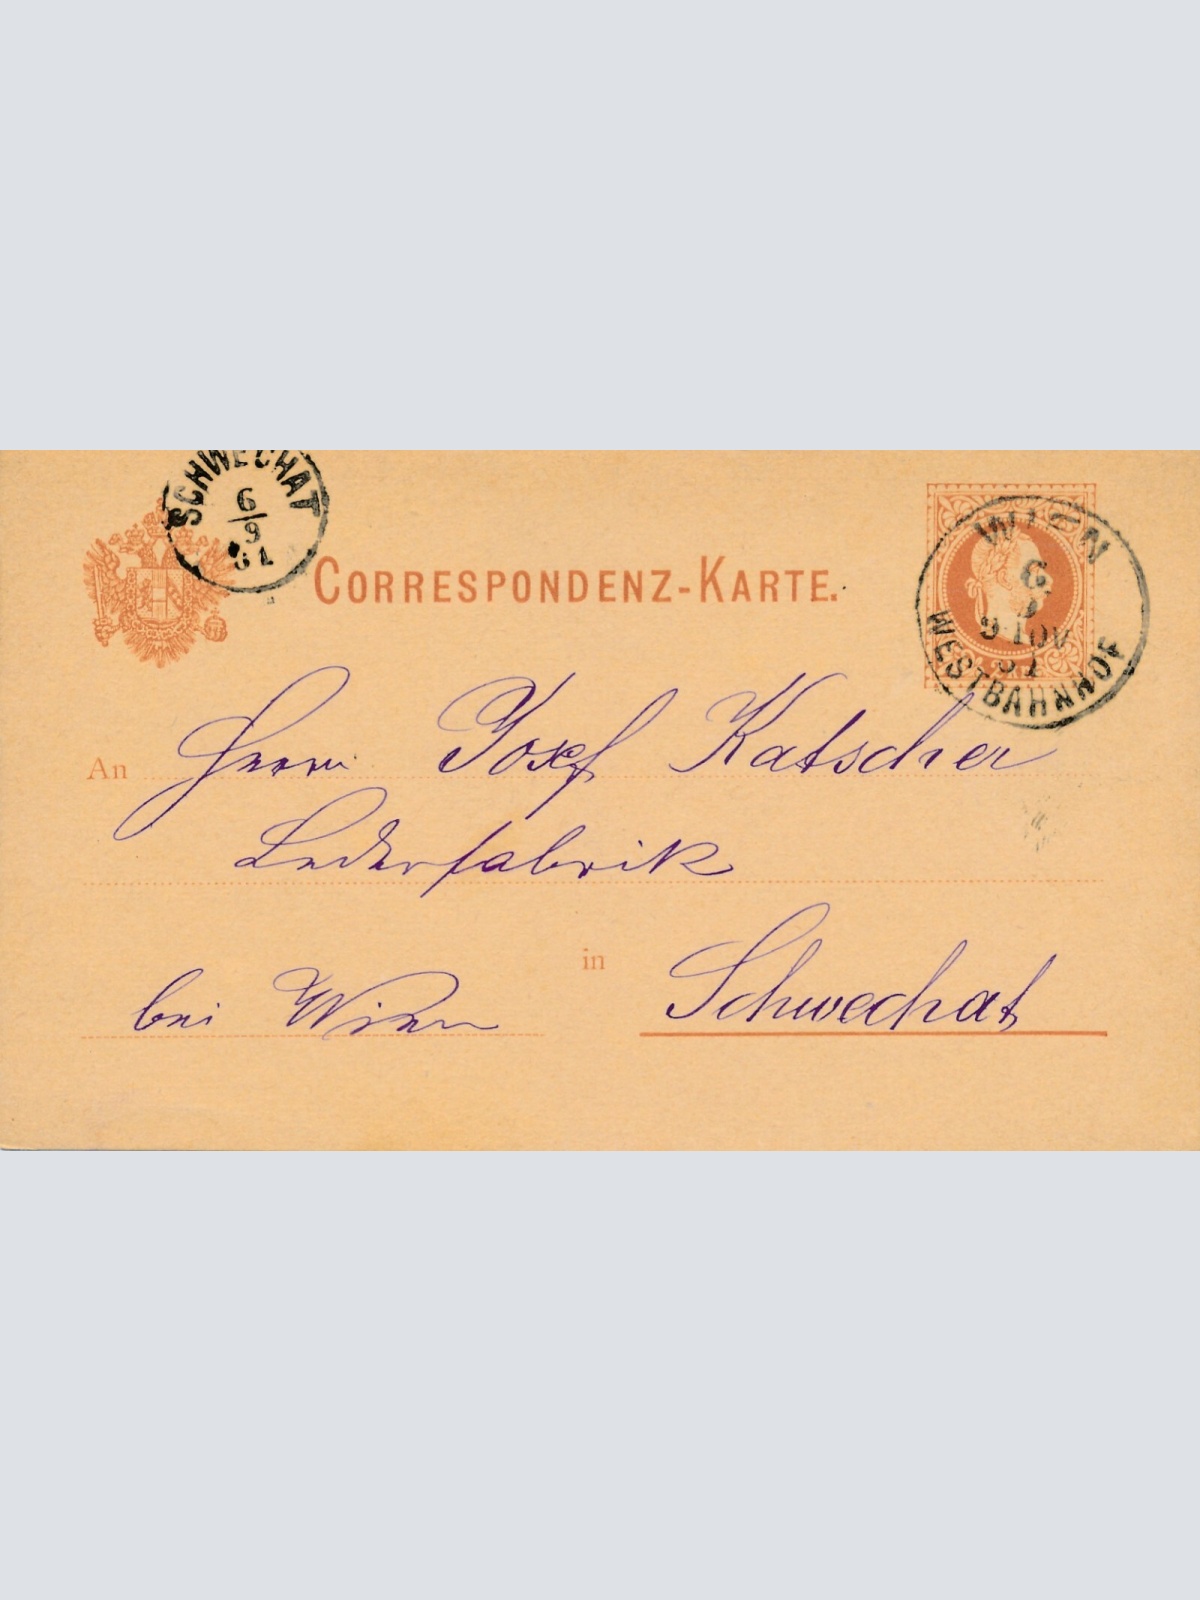 SCHWECHAT
6
9
81
CORRESPONDENZ-KARTE.
WIEN
6
9
9-10V
81
WESTBAHNHOF
An Herrn Josef Katscher
Lederfabrik
in
bei Wien Schwechat